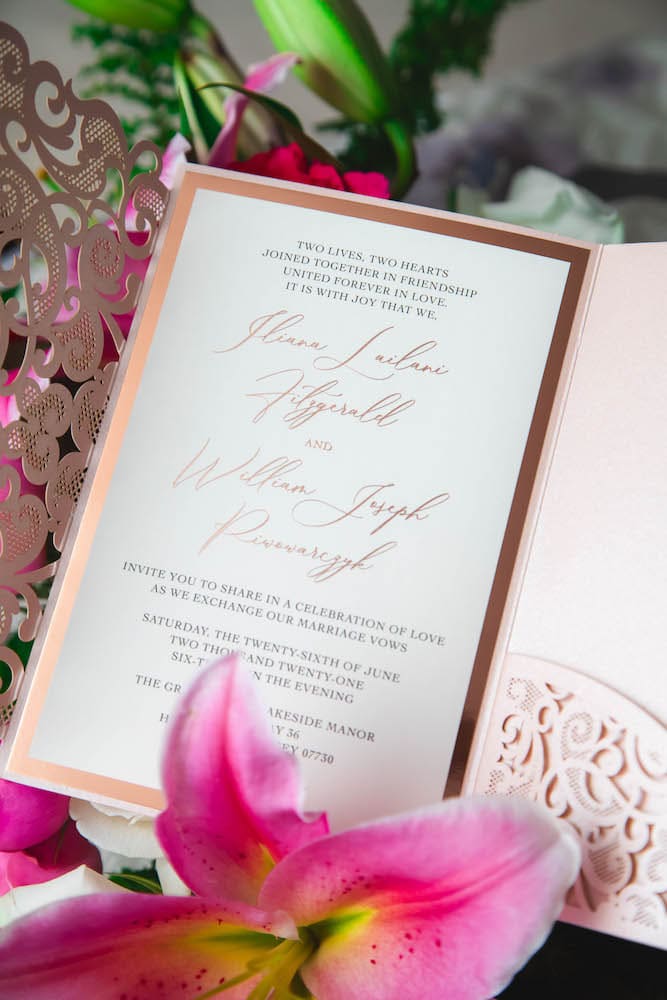 TWO LIVES, TWO HEARTS
JOINED TOGETHER IN FRIENDSHIP
UNITED FOREVER IN LOVE.
IT IS WITH JOY THAT WE,
Iliana Lailani
Fitzgerald
AND
William Joseph
Piwowarczyk
INVITE YOU TO SHARE IN A CELEBRATION OF LOVE
AS WE EXCHANGE OUR MARRIAGE VOWS
SATURDAY, THE TWENTY-SIXTH OF JUNE
TWO THOUSAND TWENTY-ONE
IN THE EVENING
THE LAKESIDE MANOR
36
07730